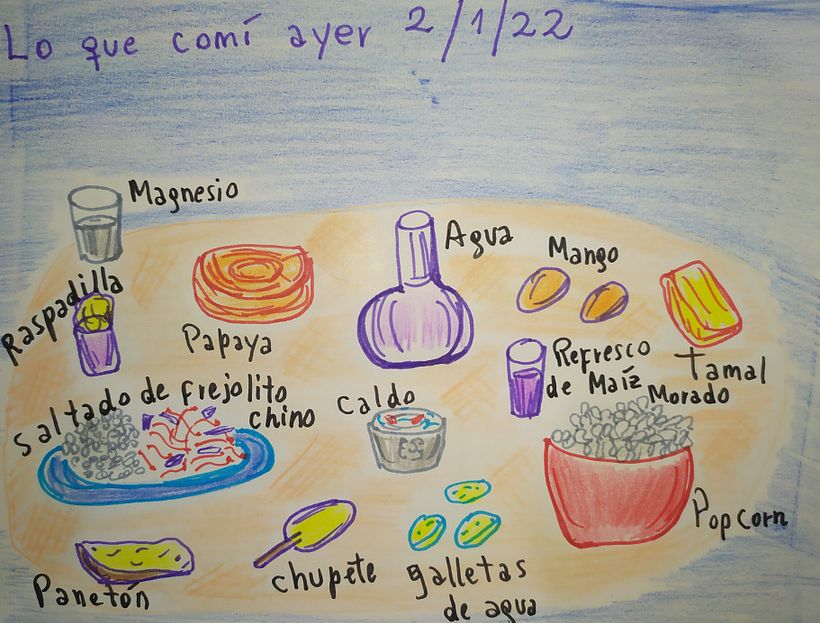 Lo que comí ayer 2/1/22
Magnesio
Agua
Mango
Raspadilla
Papaya
Refresco
de Maíz
Morado
Tamal
saltado de frejolito
chino
Caldo
Popcorn
Panetón
chupete
galletas
de agua